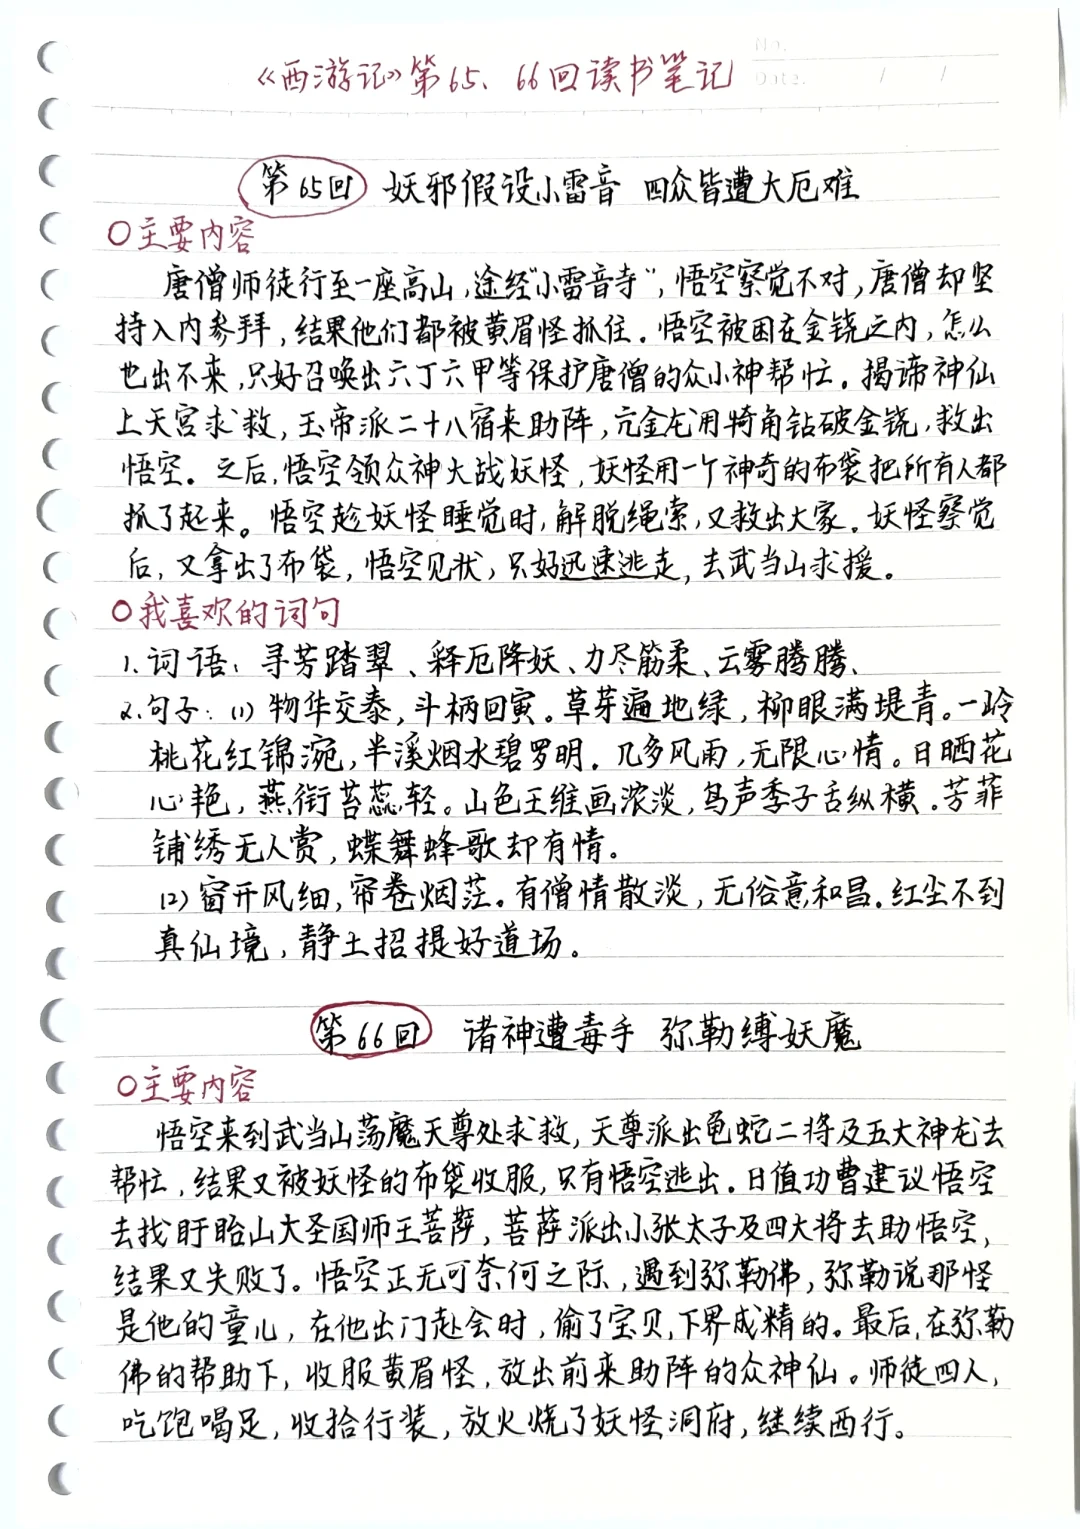 《西游记》第65、66回读书笔记
No.
Date. / /
第65回 妖邪假设小雷音 四众皆遭大厄难
○主要内容
唐僧师徒行至一座高山,途经“小雷音寺”,悟空察觉不对,唐僧却坚
持入内参拜,结果他们都被黄眉怪抓住。悟空被困在金铙之内,怎么
也出不来,只好召唤出六丁六甲等保护唐僧的众小神帮忙。揭谛神仙
上天宫求救,玉帝派二十八宿来助阵,亢金龙用犄角钻破金铙,救出
悟空。之后,悟空领众神大战妖怪,妖怪用一个神奇的布袋把所有人都
抓了起来。悟空趁妖怪睡觉时,解脱绳索,又救出大家。妖怪察觉
后,又拿出了布袋,悟空见状,只好迅速逃走,去武当山求援。
○我喜欢的词句
1.词语:寻芳踏翠、释厄降妖、力尽筋柔、云雾腾腾、
2.句子:(1)物华交泰,斗柄回寅。草芽遍地绿,柳眼满堤青。一岭
桃花红锦涴,半溪烟水碧罗明。几多风雨,无限心情。日晒花
心艳,燕衔苔蕊轻。山色王维画浓淡,鸟声季子舌纵横。芳菲
铺绣无人赏,蝶舞蜂歌却有情。
(2)窗开风细,帘卷烟茫。有僧情散淡,无俗意和昌。红尘不到
真仙境,静土招提好道场。
第66回 诸神遭毒手 弥勒缚妖魔
○主要内容
悟空来到武当山荡魔天尊处求救,天尊派出龟蛇二将及五大神龙去
帮忙,结果又被妖怪的布袋收服,只有悟空逃出。日值功曹建议悟空
去找盱眙山大圣国师王菩萨,菩萨派出小张太子及四大将去助悟空,
结果又失败了。悟空正无可奈何之际,遇到弥勒佛,弥勒说那怪
是他的童儿,在他出门赴会时,偷了宝贝,下界成精的。最后,在弥勒
佛的帮助下,收服黄眉怪,放出前来助阵的众神仙。师徒四人,
吃饱喝足,收拾行装,放火烧了妖怪洞府,继续西行。